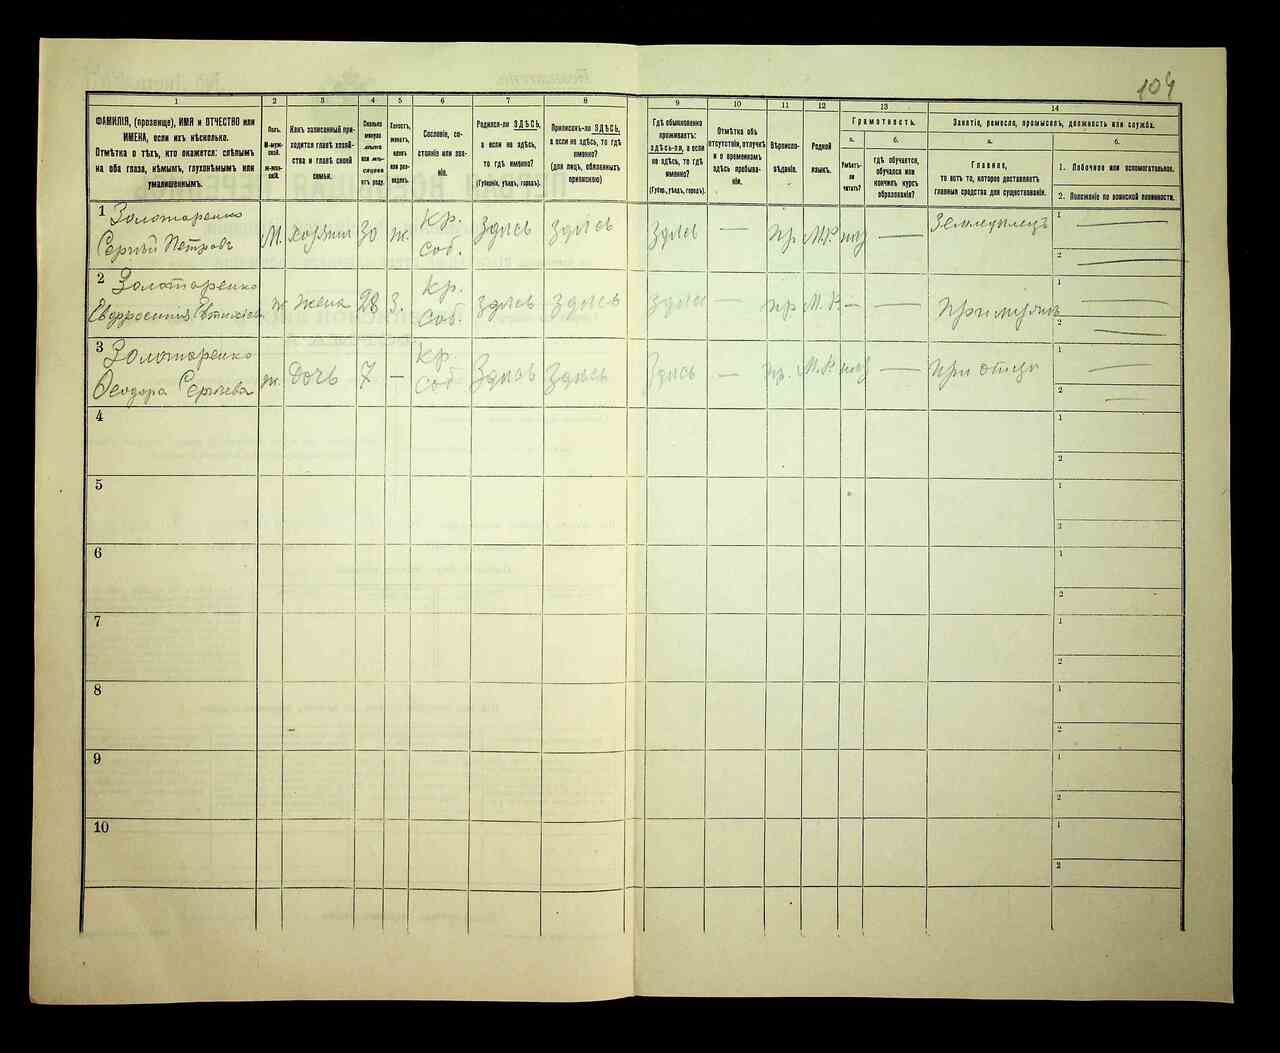 104
1
2
3
4
5
6
7
8
9
10
11
12
13
14
ФАМИЛІЯ, (прозвище), ИМЯ и ОТЧЕСТВО или
ИМЕНА, если ихъ нѣсколько.
Отмѣтка о тѣхъ, кто окажется: слѣпымъ
на оба глаза, нѣмымъ, глухонѣмымъ или
умалишеннымъ.
Полъ.
М-муж-
ской.
Ж-жен-
скій.
Какъ записанный при-
ходится главѣ хозяй-
ства и главѣ своей
семьи.
Сколько
минуло
лѣтъ
или мѣ-
сяцевъ
отъ роду.
Холостъ,
женатъ,
вдовъ
или раз-
веденъ.
Сословіе, со-
стояніе или зва-
ніе.
Родился-ли ЗДѢСЬ,
а если не здѣсь,
то гдѣ именно?
(Губернія, уѣздъ, городъ).
Приписанъ-ли ЗДѢСЬ,
а если не здѣсь, то гдѣ
именно?
(для лицъ, обязанныхъ
припискою)
Гдѣ обыкновенно
проживаетъ:
здѣсь-ли, а если
не здѣсь, то гдѣ
именно?
(Губерн., уѣздъ, городъ).
Отмѣтка объ
отсутствіи, отлучкѣ
и о временномъ
здѣсь пребыва-
ніи.
Вѣроиспо-
вѣданіе.
Родной
языкъ.
Грамотность.
а.
Умѣетъ-
ли
читать?
б.
гдѣ обучается,
обучался или
кончилъ курсъ
образованія?
Занятіе, ремесло, промыселъ, должность или служба.
а.
Главное,
то есть то, которое доставляетъ
главныя средства для существованія.
б.
1. Побочное или вспомогательное.
2. Положеніе по воинской повинности.
1 Золотаренко
Сергѣй Петровъ
М. хозяин 30 ж. Кр. соб. здѣсь здѣсь здѣсь — пр. М.Р. — Земледѣлецъ
1 —
2 —
2 Золотаренко
Евфросинія
ж жена 28 З. Кр. соб. здѣсь здѣсь здѣсь — пр М.Р. — — При мужѣ
1 —
2 —
3 Золотаренко
Ѳеодора Сергѣева
ж. дочь 7 — Кр. соб здѣсь здѣсь здѣсь — пр. М.Р. — при отцѣ
1 —
2 —
4
1
2
5
1
2
6
1
2
7
1
2
8
1
2
9
1
2
10
1
2